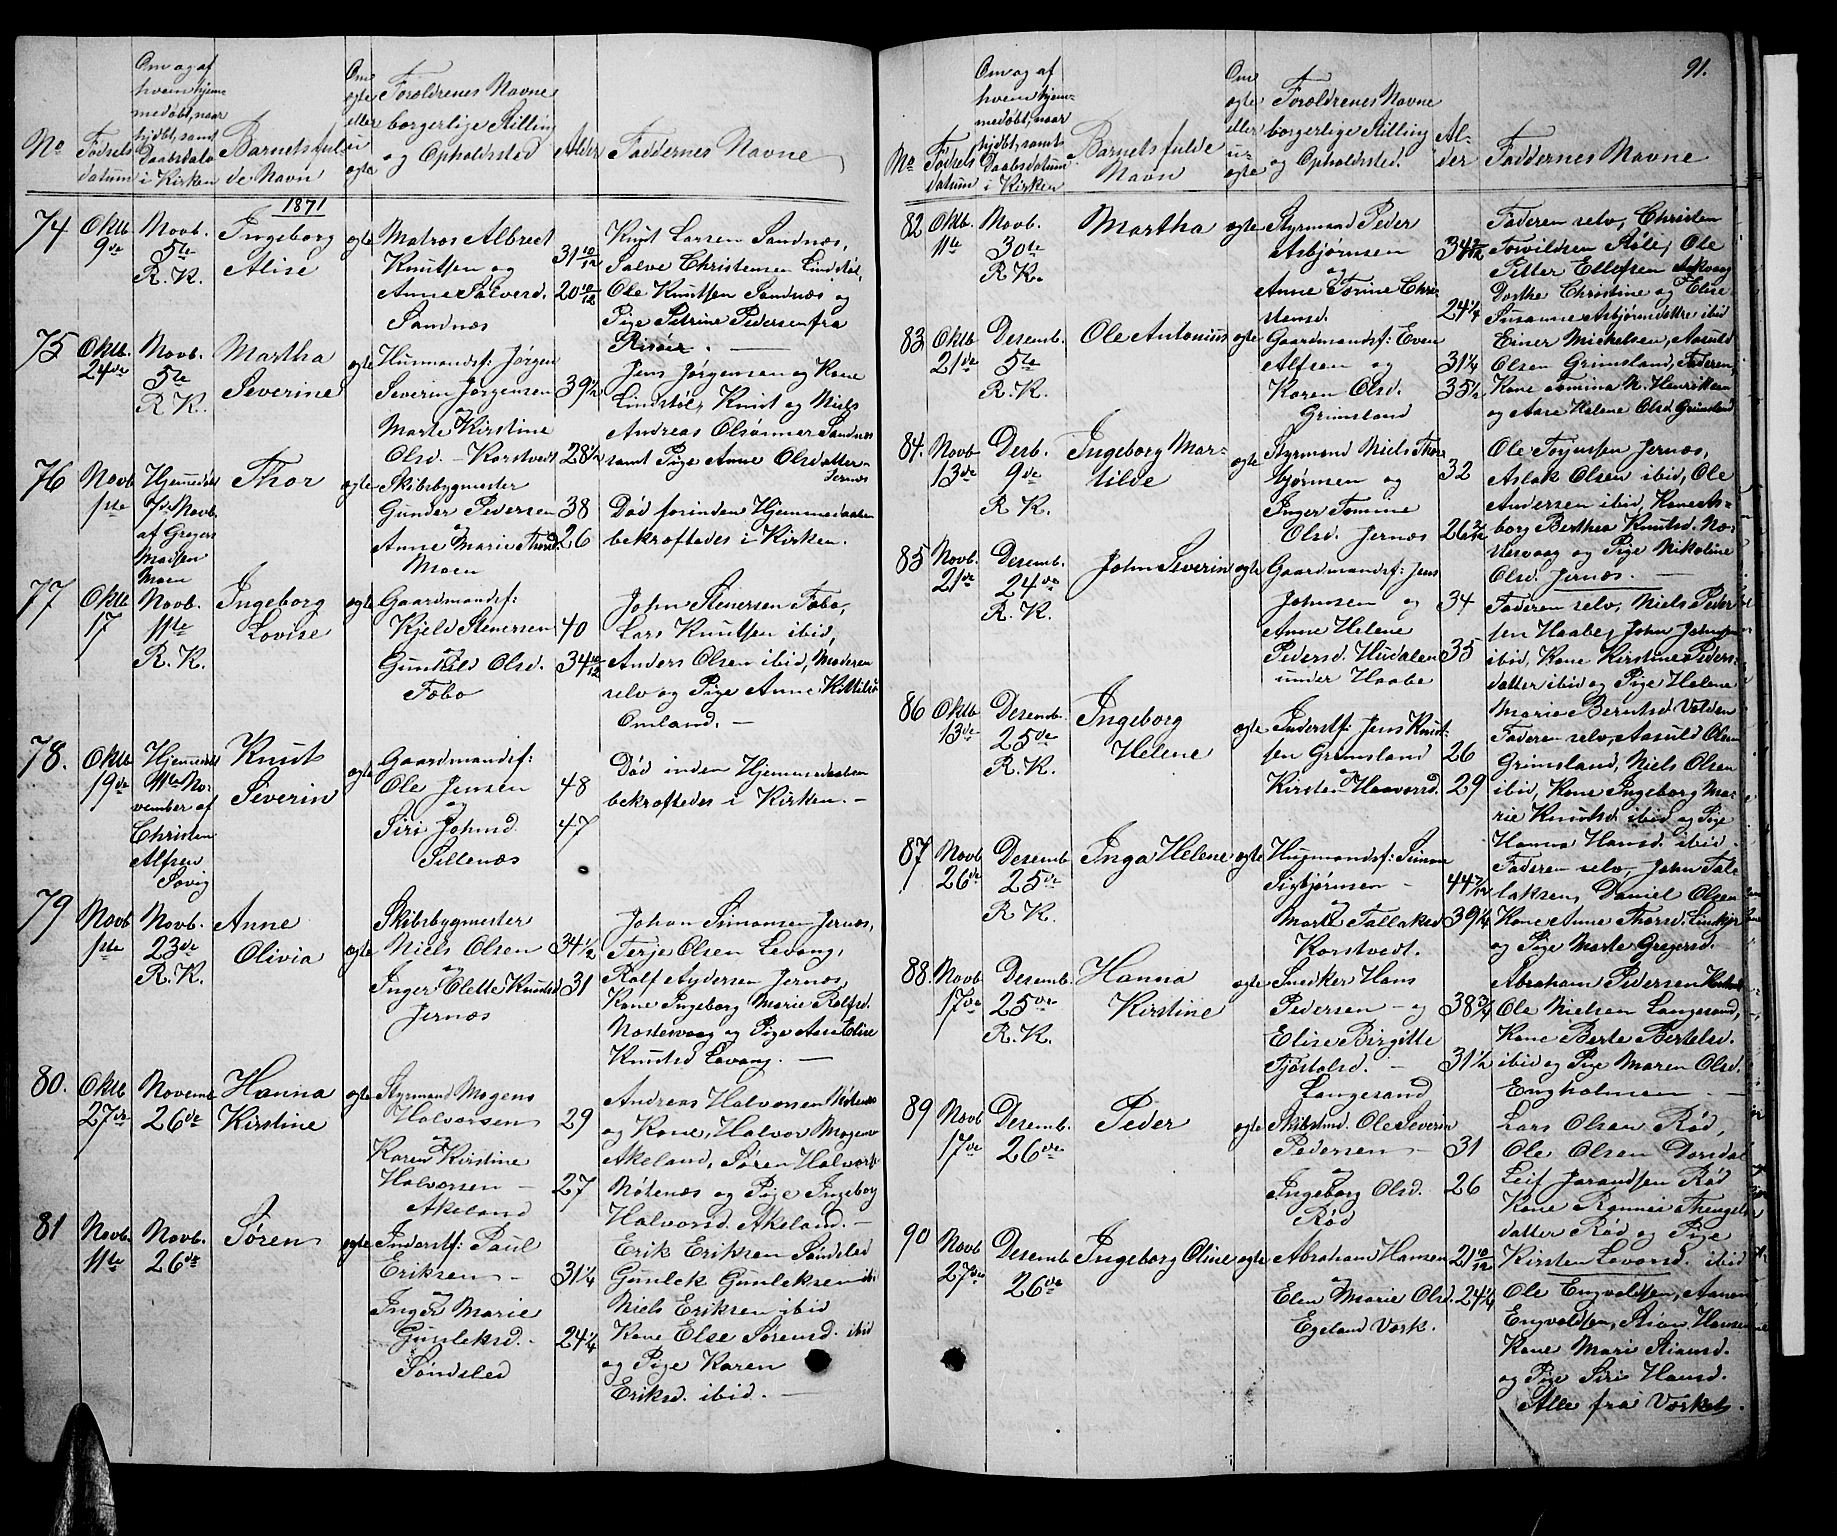 91.
No
Fødsels
datum
Om og af
hvem hjem-
medøbt, naar
hjdbt, samt
Daabsdatum
i Kirken
Barnets ful-
de Navn
Om
ægte
eller
u-
ægte
Forældrenes Navne
borgerlige Stilling
og Opholdssted
Alder
Faddernes Navne
1871
74
Oktb.
9de
Novb.
5te
R. K.
Ingeborg
Alise
ægte
Matros Albrect
Knutsen og
Anne Salvesd.
Sandnæs
31 10/12
20 10/12
Knut Larsen Sandnæs,
Salve Christensen Lindstøl,
Ole Knutsen Sandnæs og
Pige Petrine Pedersen fra
Risøer. —
75
Oktb.
24de
Novb.
5te
R. K.
Martha
Severine
ægte
Husmandsf: Jørgen
Severin Jørgensen
og
Marte Kirstine
Olsd. - Korstvedt
39 1/2
28 1/2
Jens Jørgensen og Kone
Lindstøl, Knut og Niels
Andreas Olsønner Sandnæs
samt Pige Anne Olsdatter
Jernæs
76
Novb
1ste
Hjemmedøbt
Novb.
af Gregers
Madsen
Moen
Thor
ægte
Skibsbygmester
Gunder Pedersen
og
Anne Marie Thorsd
Moen
38
26
Død forinden Hjemmedaaben
bekræftedes i Kirken.
77
Oktb
17
Novb.
11te
R. K.
Ingeborg
Lovise
ægte
Gaardmandsf:
Kjeld Stenersen
og
Gunhild Olsd.
Fobo
40
34 10/12
John Stenersen Fobo,
Lars Knutsen ibid,
Anders Olsen ibid, Moderen
selv og Pige Anne Kittilsd
Omland. —
78.
Oktb
19de
Hjemmedøbt
11te No-
vember af
Christen
Alfsen
Sovig
Knut
Severin
ægte
Gaardmandsf:
Ole Jensen
og
Siri Johnsd.
Sillenæs
48
47
Død inden Hjemmedaaben
bekræftedes i Kirken. —
79
Novb
1ste
Novb.
23de
R. K.
Anne
Olivia
ægte
Skibsbygmester
Niels Olsen
og
Inger Elette Knudsd
Jernæs
34 1/2
31
Johan Simonsen Jernæs,
Terje Olsen Levang,
Rolf Andersen Jernæs,
Kone Ingeborg Marie Rolfsd.
Nostervaag og Pige Aase Elise
Knutsd Levang. —
80.
Oktb
27de
Novemb
26de
Hanna
Kirstine
ægte
Styrmand Mogens
Halvorsen
og
Karen Kirstine
Halvorsen —
Akeland
29
27
Andreas Halvorsen Nötenæs
og Kone, Halvor Mogens
Akeland, Søren Halvors
Nötenæs og Pige Ingeborg
Halvorsd. Akeland. —
81
Novb.
11te
Novb.
26de
Søren
ægte
Inderstf: Paul
Eriksen —
og
Inger Marie
Gunleksd. —
Søndeled
31 1/4
24 1/4
Erik Eriksen Søndeled
Gunlek Gunleksen ibi
Niels Eriksen ibid
Kone Else Sørensd. ibid
og Pige Karen
Eriksd. ibid. —
No
Fødsels
datum
Om og af
hvem hjem-
medøbt, naar
hjdbt, samt
Daabsdatum
i Kirken
Barnets fulde
Navn
Om
ægte
eller
u-
ægte
Forældrenes Navne
borgerlige Stilling
og Opholdssted.
Al-
der
Faddernes Navne
82
Oktb.
11te
Novb.
30te
R. K.
Martha
ægte
Styrmand Peder
Asbjørnsen
og
Anne Torine Chri-
stensd.
34 2/12
24 1/4
Faderen selv, Christen
Torvildsen Røle, Ole
Petter Ellefsen Askvaag
Dorthe Christine og Elise
Susanne Asbjørnsdøttre ibid
83
Oktb.
21de
Desemb.
5te
R. K.
Ole Antonius
ægte
Gaardmandsf: Even
Alfsen og
Karen Olsd.
Grimsland
31 1/4
35 1/2
Einer Mickelsen, Aasuld
Olsen Grimsland, Faderen,
Kone Tomina N. Henriksen
og Aase Helene Olsd. Grimsland
84.
Novb
13de
Desb.
9de
R. K.
Ingeborg Mar-
tilde
ægte
Styrmand Niels Thor-
bjørnsen og
Inger Tomine
Olsd. Jernæs
32
26 3/12
Ole Torjussen Jernæs,
Aslak Olsen ibid, Ole
Andersen ibid, Kone As-
borg Berthea Knutsd. No-
stervaag og Pige Nikoline
Olsd. Jernæs. —
85
Novb.
21de
Desemb.
24de
R. K.
John Severin
ægte
Gaardmandsf: Jens
Johnsen og
Anne Helene
Pedersd. Hudalen
under Haabe
34
35
Faderen selv, Niels Peder-
sen Haabe, John Johnsen
ibid, Kone Kirstine Peders-
datter ibid og Pige Helene
Marie Berntsd Valden
86
Oktb
13de
Desemb.
25de
R. K.
Ingeborg
Helene
ægte
Inderstf: Jens Knut-
sen Grimsland
og
Kirsten Haavorsd.
26
29
Faderen selv, Aasuld Olsen
Grimsland, Niels Olsen
ibid, Kone Ingeborg Ma-
rie Knutsd. ibid og Pige
Hanna Hansd. ibid
87
Novb
26de
Desemb.
25de
R K.
Inga Helene
ægte
Husmandsf: Simon
Sigbjørnsen —
og
Marte Tallaksd
Korstvedt.
44 7/12
39 1/4
Faderen selv, John Tal-
laksen, Daniel Olsen
Kone Anne Thorsd.
og Pige Marte Gregersd.
88
Novb
17de
Desemb.
25de
R. K.
Hanna
Kirstine
ægte
Snedker Hans
Pedersen — og
Elise Birgitte
Tjøstolsd. —
Langesand
38 3/4
31 1/2
Abraham Pedersen
Ole Nielsen Langesand,
Kone Berte Bertelsd.
ibid og Pige Maren Olsd.
Engholmen —
89
Novb.
17de
Desemb.
26de
Peder
ægte
Skibstmd. Ole Severin
Pedersen —
og
Ingeborg Olsd.
Rød
31
26
Lars Olsen Rød,
Ole Olsen Dorsdal
Leif Jorandsen Rød
Kone Rannei Thengels-
datter Rød og Pige
Kirsten Levorsd. ibid
90
Novb
27de
Desemb
26de
Ingeborg Oline
ægte
Abraham Hansen
og
Elen Marie Olsd.
Egeland Værk.
21 10/12
24 1/4
Ole Engvoldsen, Aanon
Engvoldsen, Hansen
Kone Mari
og Pige Siri Hansd.
Alle fra Værket.